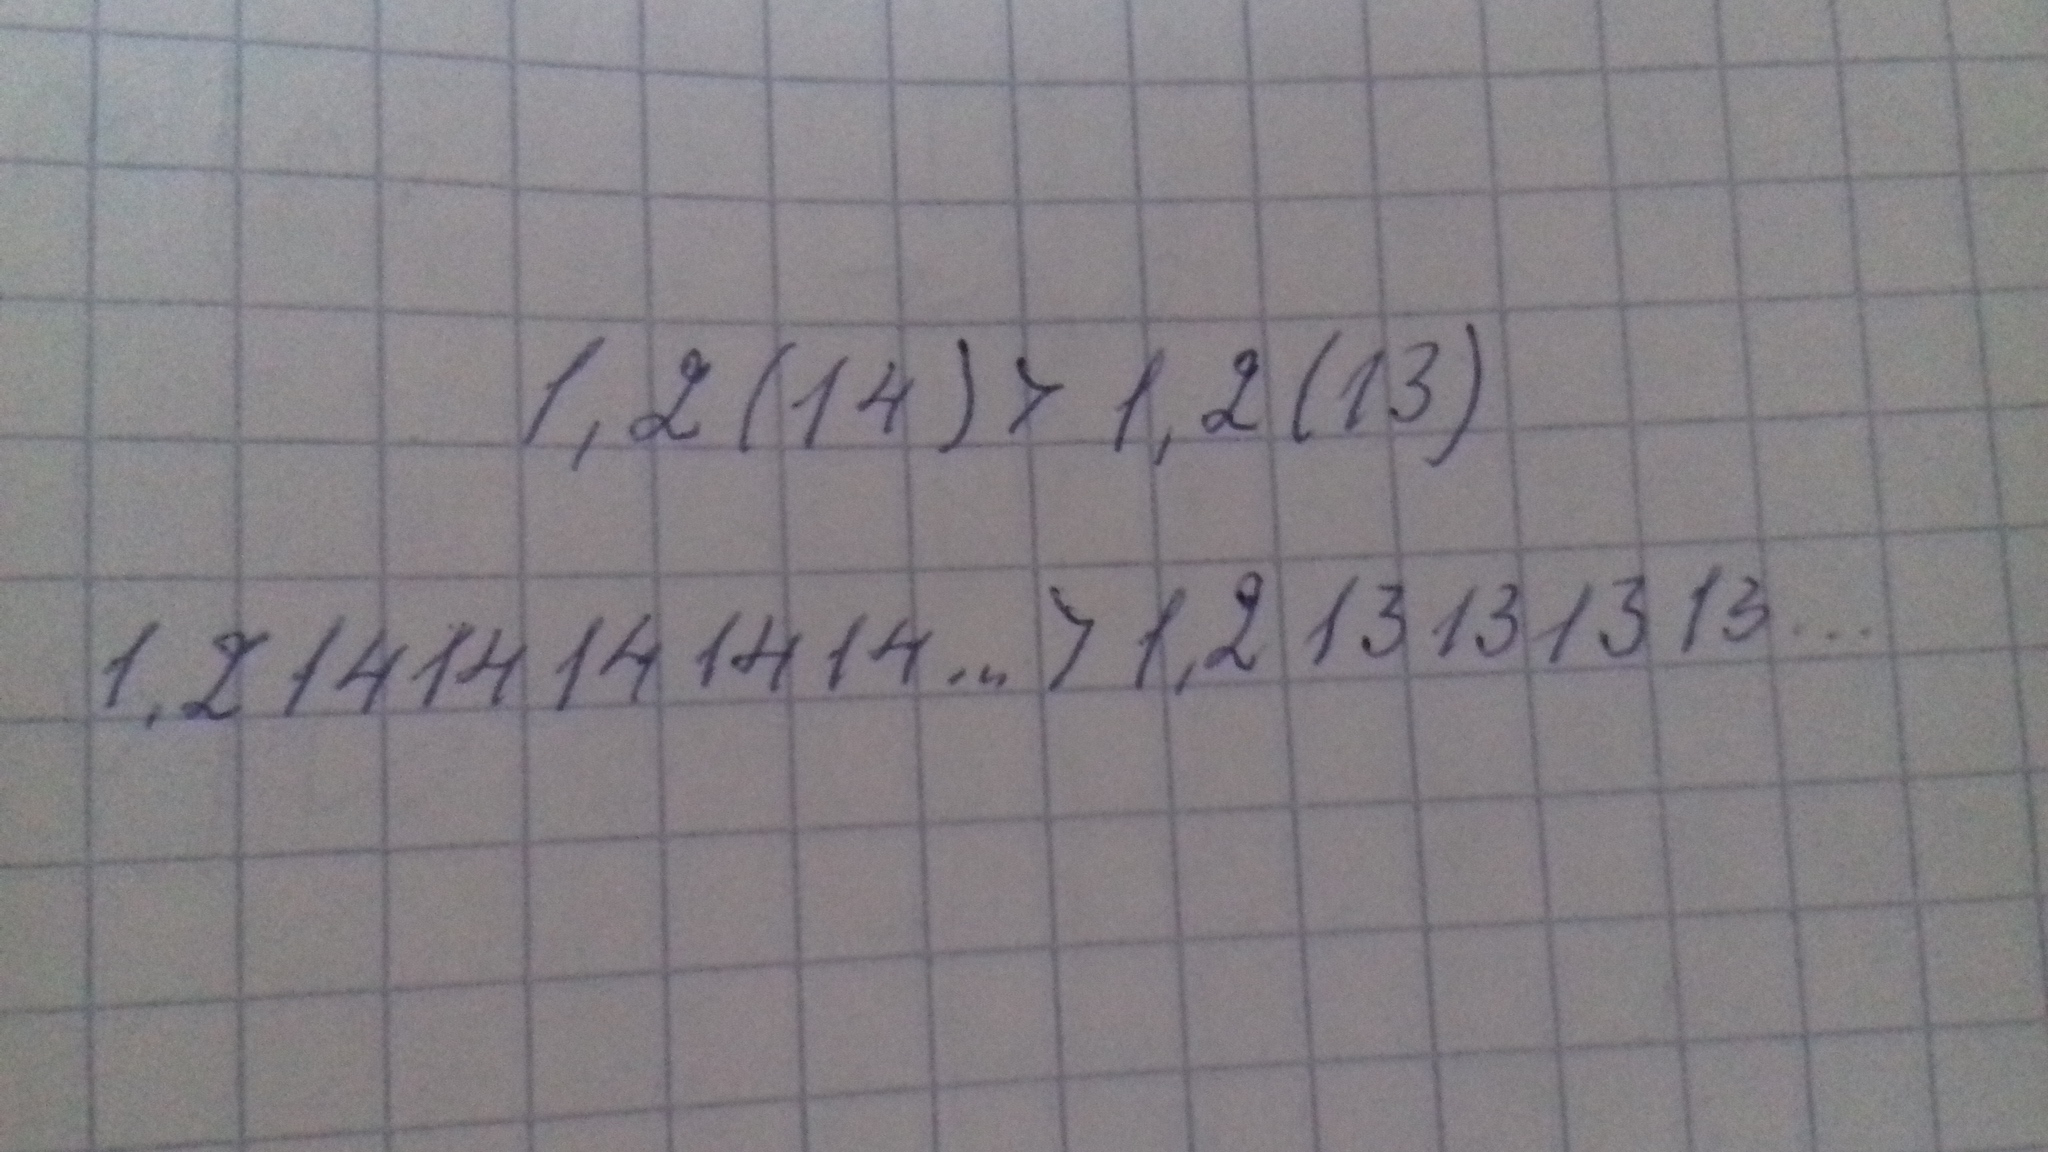 1,2(14)>1,2(13)
1,21414141414...>1,213131313...